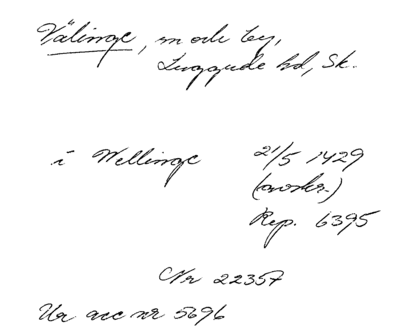 Välinge, sn och by,
Luggude hd, Sk.
i Wellinge 21/5 1429
(avskr.)
Rep. 6395
Nr 22357
Ur acc nr 5696